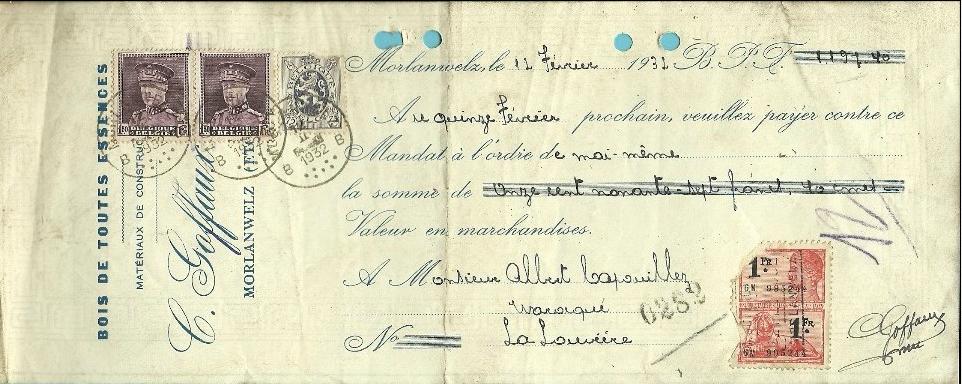 BOIS DE TOUTES ESSENCES
MATÉRIAUX DE CONSTRUC
C. Goffaux
MORLANWELZ (ETG
Morlanwelz, le 12 Février 1932 B. P. F. 1197,40
Au quinze Février prochain, veuillez payer contre ce
Mandat à l'ordre de moi-même
la somme de Onze cent nonante-sept francs, 40 cmes
Valeur en marchandises.
A Monsieur Albert Capouillez
La Louvière
No
0282
12
BELGIE
1932
B B
1932
B B
1932
B B
1 FR
GN 995244
1 FR
GN 995244
Goffaux